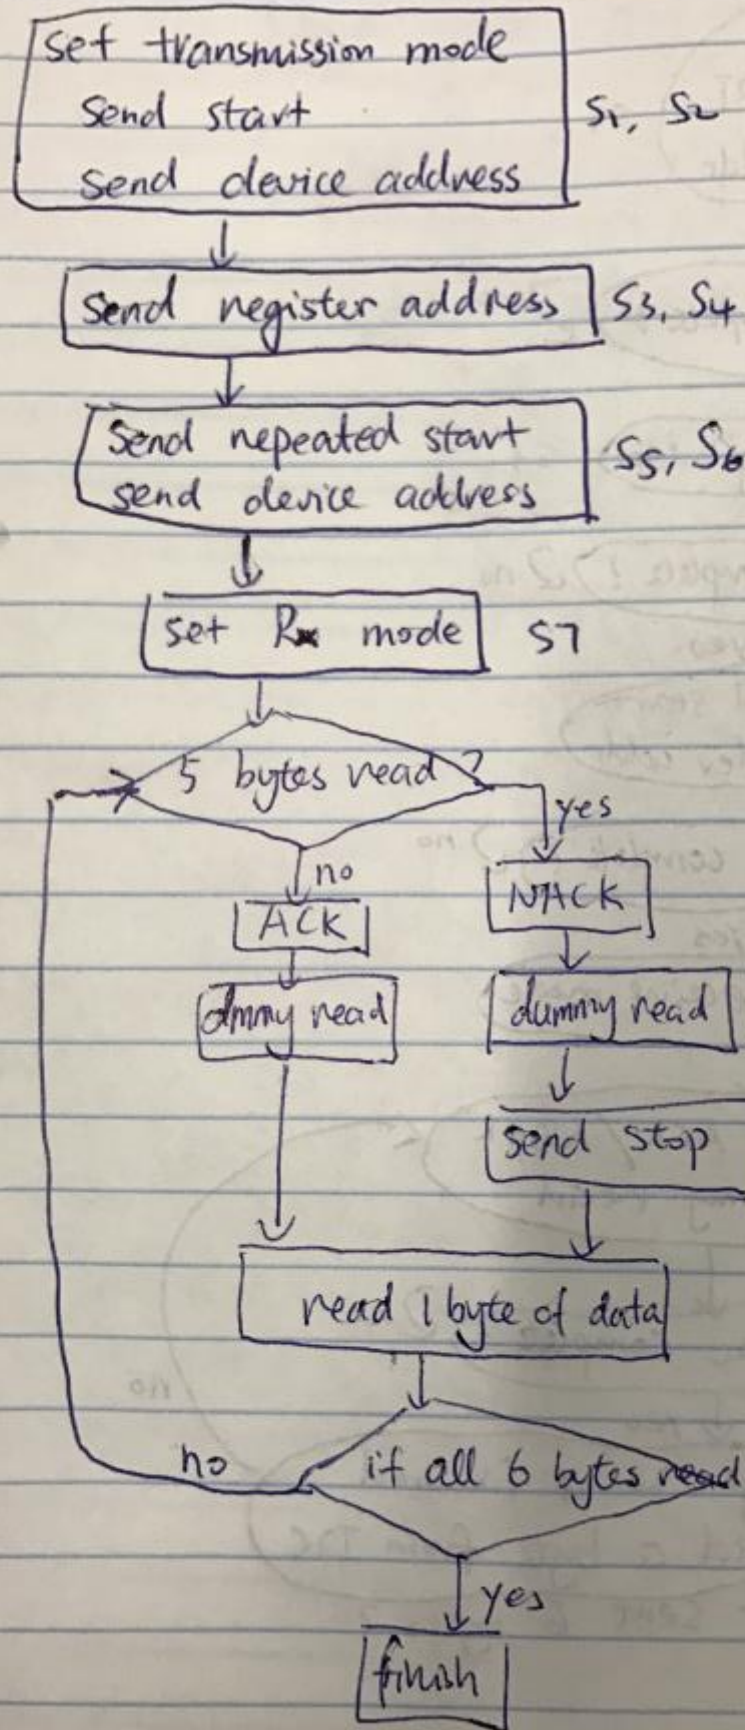 set transmission mode
send start
send device address
S1, S2
send register address
S3, S4
send repeated start
send device address
S5, S6
set Rx mode
S7
5 bytes read ?
yes
no
NACK
ACK
dmmy read
dummy read
send stop
read 1 byte of data
no
if all 6 bytes read
yes
finish